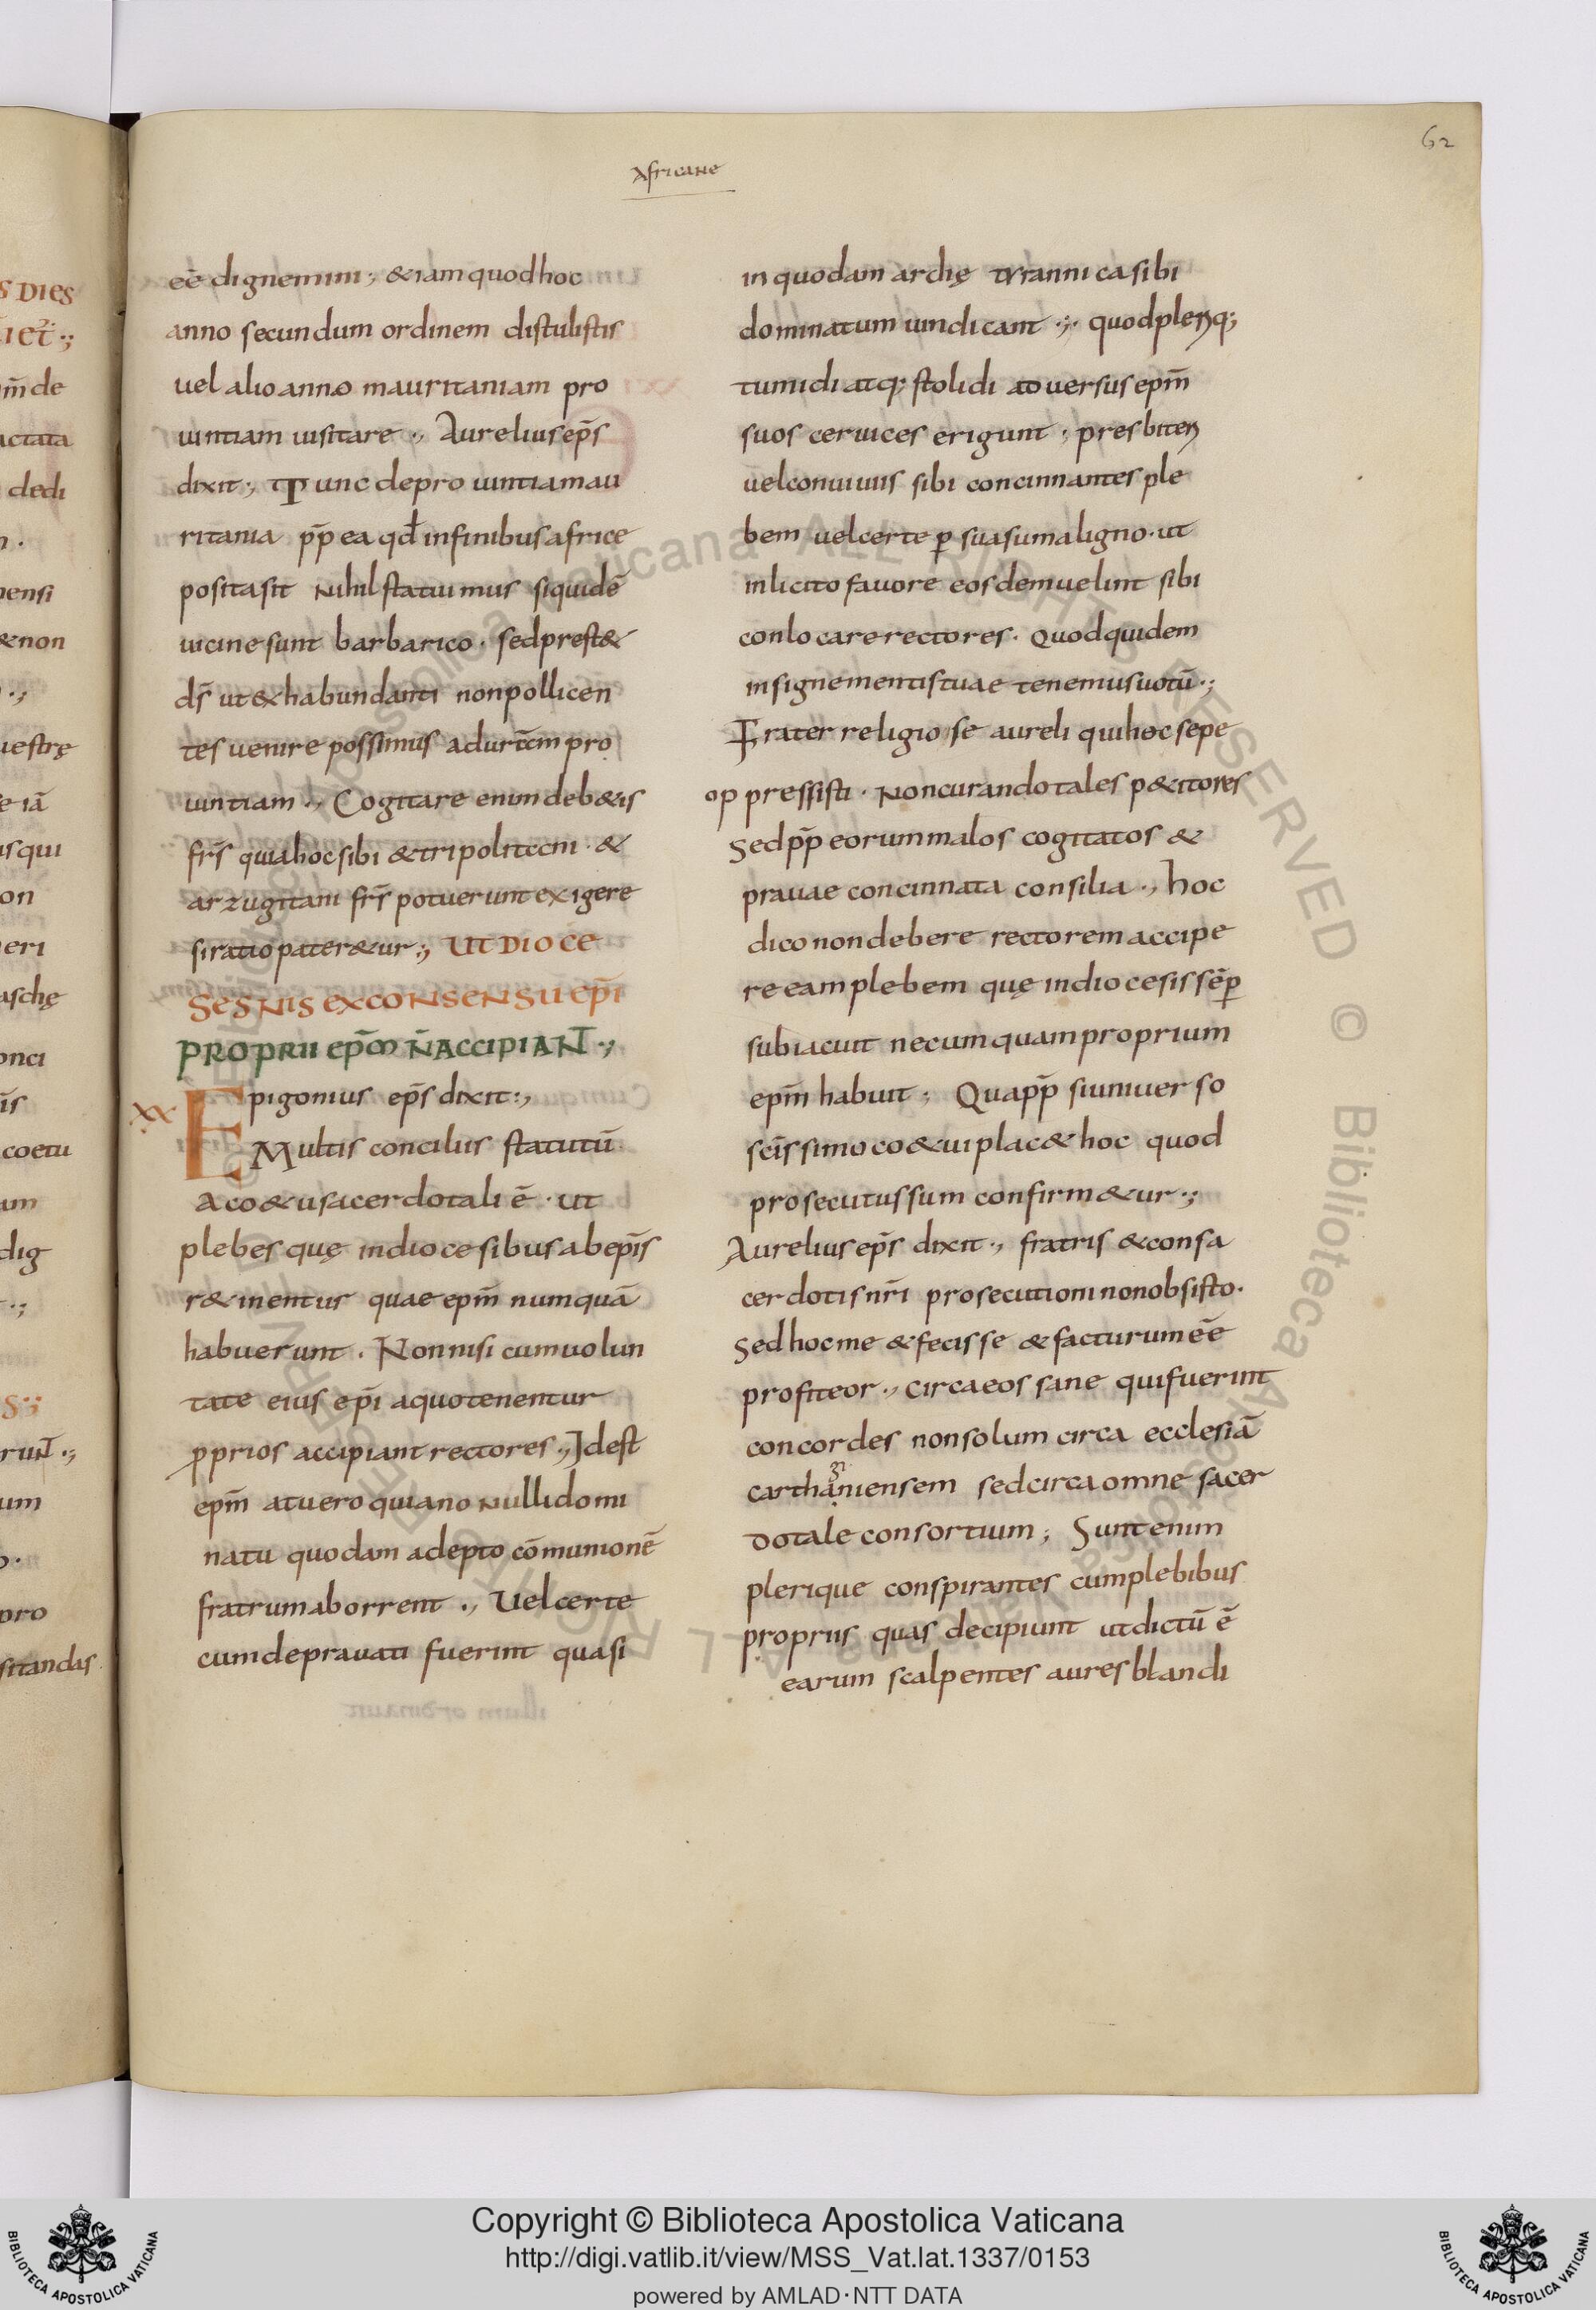 Africane
62
eē dignemini; &iam quod hoc
anno secundum ordinem distulistis
uel alio anno mauritaniam pro
uintiam uisitare ., Aurelius ep̄s
dixit; Tunc de prouintia mau
ritania pp̄ ea qđ in finibus africe
posita sit nihil statuimus siquidē
uicine sunt barbarico. sed prest&
d̄s ut ex habundanti non pollicen
tes uenire possimus ad urtc̄m pro
uintiam ., Cogitare enim deb&is
fr̄s quia hoc sibi & tripolitani. &
arzugitani fr̄s potuerunt exigere
si ratio pater&ur ., UT DIOCE
SESNIS EX CONSENSU EP̄I
PROPRII EP̄M N̄ ACCIPIANT .,
XX
Epigonius ep̄s dixit:,
Multis conciliis statutū
A co&u sacerdotali ē . ut
plebes quę in diocesibus ab ep̄is
r&inentur quae ep̄m numquā
habuerunt . Non nisi cum uolun
tate eius ep̄i a quo tenentur
ꝓprios accipiant rectores ., Id est
ep̄m at uero quia no nulli domi
natu quodam adepto cōmunionē
fratrum aborrent ., Uel certe
cum deprauati fuerint quasi
in quodam archę tyrannica sibi
dominatum uindicant .;. quod pleriq;
tumidi atq; stolidi aduersus ep̄m
suos ceruices erigunt; presbiteri
uel conuiuiis sibi concinnantes ple
bem uel certe ꝑsuasu maligno. ut
inlicito fauore eosdem uelint sibi
conlocare rectores. Quod quidem
insigne mentis tuae tenemus uotū .,
Frater religiose aureli qui hoc sepe
oppressisti . Non curando tales p&itores
Sed pp̄ eorum malos cogitatos &
prauae concinnata consilia ., hoc
dico non debere rectorem accipe
re eam plebem quę in diocesis sēꝑ
subiacuit nec umquam proprium
ep̄m habuit; Quapp̄ si uniuerso
sc̄issimo co&ui plac& hoc quod
prosecutus sum confirm&ur .,
Aurelius ep̄s dixit ., fratris & consa
cerdotis nr̄i prosecutioni non obsisto.
Sed hoc me & fecisse & facturum eē
profiteor ., circa eos sane qui fuerint
concordes non solum circa ecclesiā
carthaniensem sed circa omne sacer
dotale consortium; Sunt enim
plerique conspirantes cum plebibus
propriis quas decipiunt ut dictū ē
earum scalpentes aures blandi
Copyright © Biblioteca Apostolica Vaticana
http://digi.vatlib.it/view/MSS_Vat.lat.1337/0153
powered by AMLAD·NTT DATA